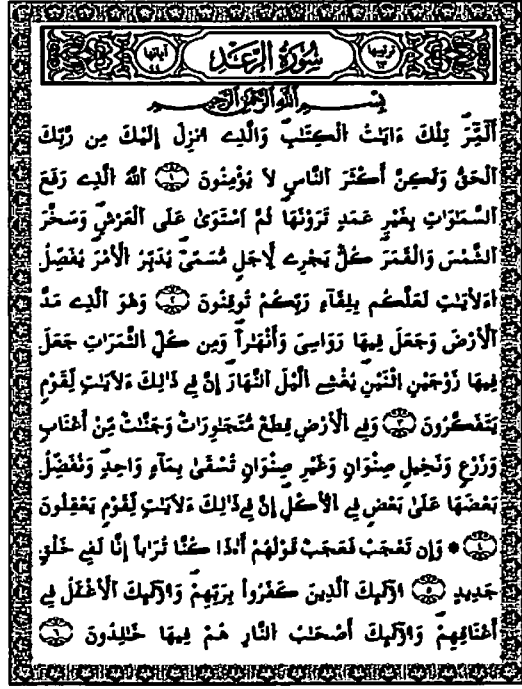 ترتيبها ١٣ سُورَةُ الرَّعْدِ آياتها ٤٤
بِسْمِ اللَّهِ الرَّحْمَٰنِ الرَّحِيمِ
أَلَٓمِّٓرَ تِلْكَ ءَايَٰتُ الْكِتَٰبِ وَالَّذِے أُنزِلَ إِلَيْكَ مِن رَّبِّكَ
اَلْحَقُّ وَلَٰكِنَّ أَكْثَرَ اَلنَّاسِ لَا يُؤْمِنُونَ ١ اَللَّهُ الَّذِے رَفَعَ
اَلسَّمَٰوَٰتِ بِغَيْرِ عَمَدٍ تَرَوْنَهَا ثُمَّ اَسْتَوَىٰ عَلَى اَلْعَرْشِ وَسَخَّرَ
اَلشَّمْسَ وَالْقَمَرَ كُلٌّ يَجْرِے لِأَجَلٍ مُّسَمّىً يُدَبِّرُ الْأَمْرَ يُفَصِّلُ
اُلْأَيَٰتِ لَعَلَّكُم بِلِقَآءِ رَبِّكُمْ تُوقِنُونَ ٢ وَهُوَ اَلَّذِے مَدَّ
اَلْأَرْضَ وَجَعَلَ فِيهَا رَوَٰسِىَ وَأَنْهَٰراً وَمِن كُلِّ اِلثَّمَرَٰتِ جَعَلَ
فِيهَا زَوْجَيْنِ اِثْنَيْنِ يُغْشِے اِلَّيْلَ اَلنَّهَارَ إِنَّ فِے ذَٰلِكَ ءَلَأيَٰتٍ لِّقَوْمٍ
يَتَفَكَّرُونَ ٣ وَفِے اِلْأَرْضِ قِطَعٌ مُّتَجَٰوِرَٰتٌ وَجَنَّٰتٌ مِّنْ أَعْنَٰبٍ
وَزَرْعٍ وَنَخِيلٍ صِنْوَانٍ وَغَيْرِ صِنْوَانٍ تُسْقَىٰ بِمَآءٍ وَٰحِدٍ وَنُفَضِّلُ
بَعْضَهَا عَلَىٰ بَعْضٍ فِے اِلْأُكْلِ إِنَّ فِے ذَٰلِكَ ءَلَأيَٰتٍ لِّقَوْمٍ يَعْقِلُونَ
٤ * وَإِن تَعْجَبْ فَعَجَبٌ قَوْلُهُمْ أَٰ۟ذَا كُنَّا تُرَٰباً إِنَّا لَفِے خَلْقٍ
جَدِيدٍ ٥ أُوْلَٰٓئِكَ اَلَّذِينَ كَفَرُواْ بِرَبِّهِمْ وَأُوْلَٰٓئِكَ اَلْأَغْلَٰلُ فِے
أَعْنَاقِهِمْ وَأُوْلَٰٓئِكَ أَصْحَٰبُ النَّارِ هُمْ فِيهَا خَٰلِدُونَ ٦